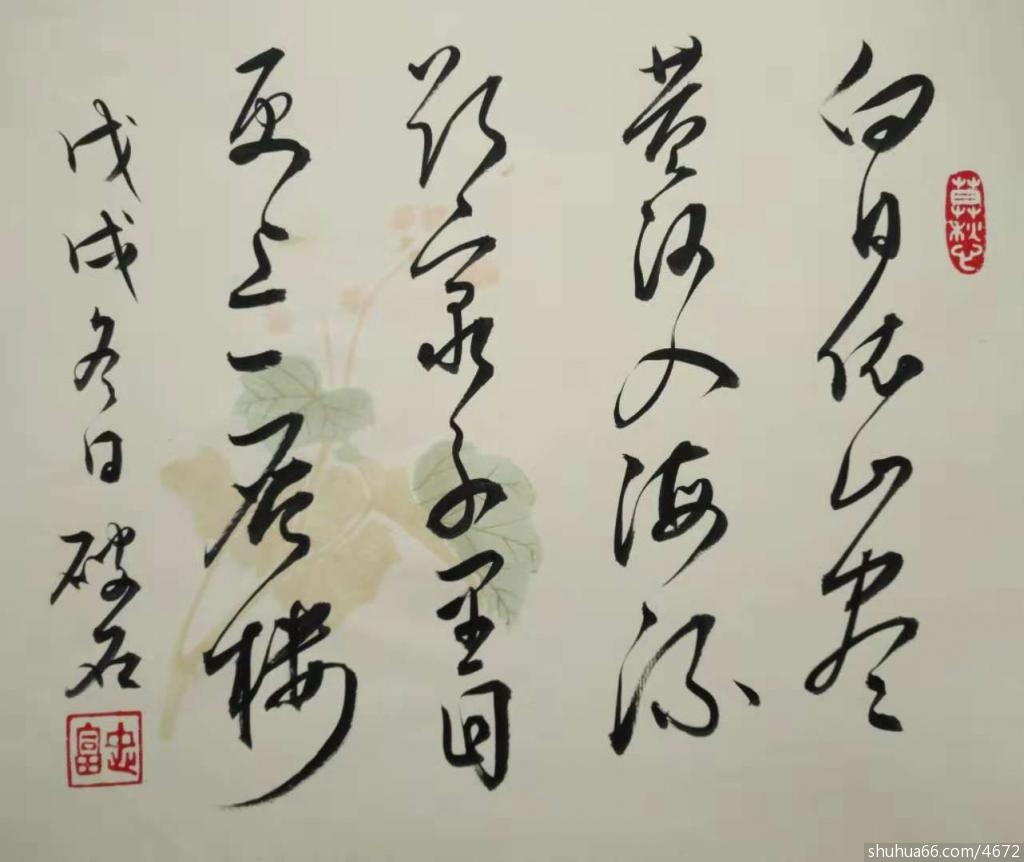 白日依山尽
黄河入海流
欲穷千里目
更上一层楼
戊戌冬日 破石
忠富
shuhua66.com/4672